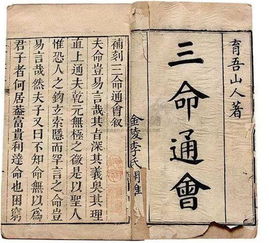 育吾山人著
三命通會
金陵李氏
補刻三命通會叙
夫命豈易言哉其旨深其義奥其理
直上通夫乾元無極之是以聖人
惟恐人之鈎玄索隱而罕言之命豈
易言哉然夫子又曰不知命無以爲
君子者何居蓋富貴利達命也困窮